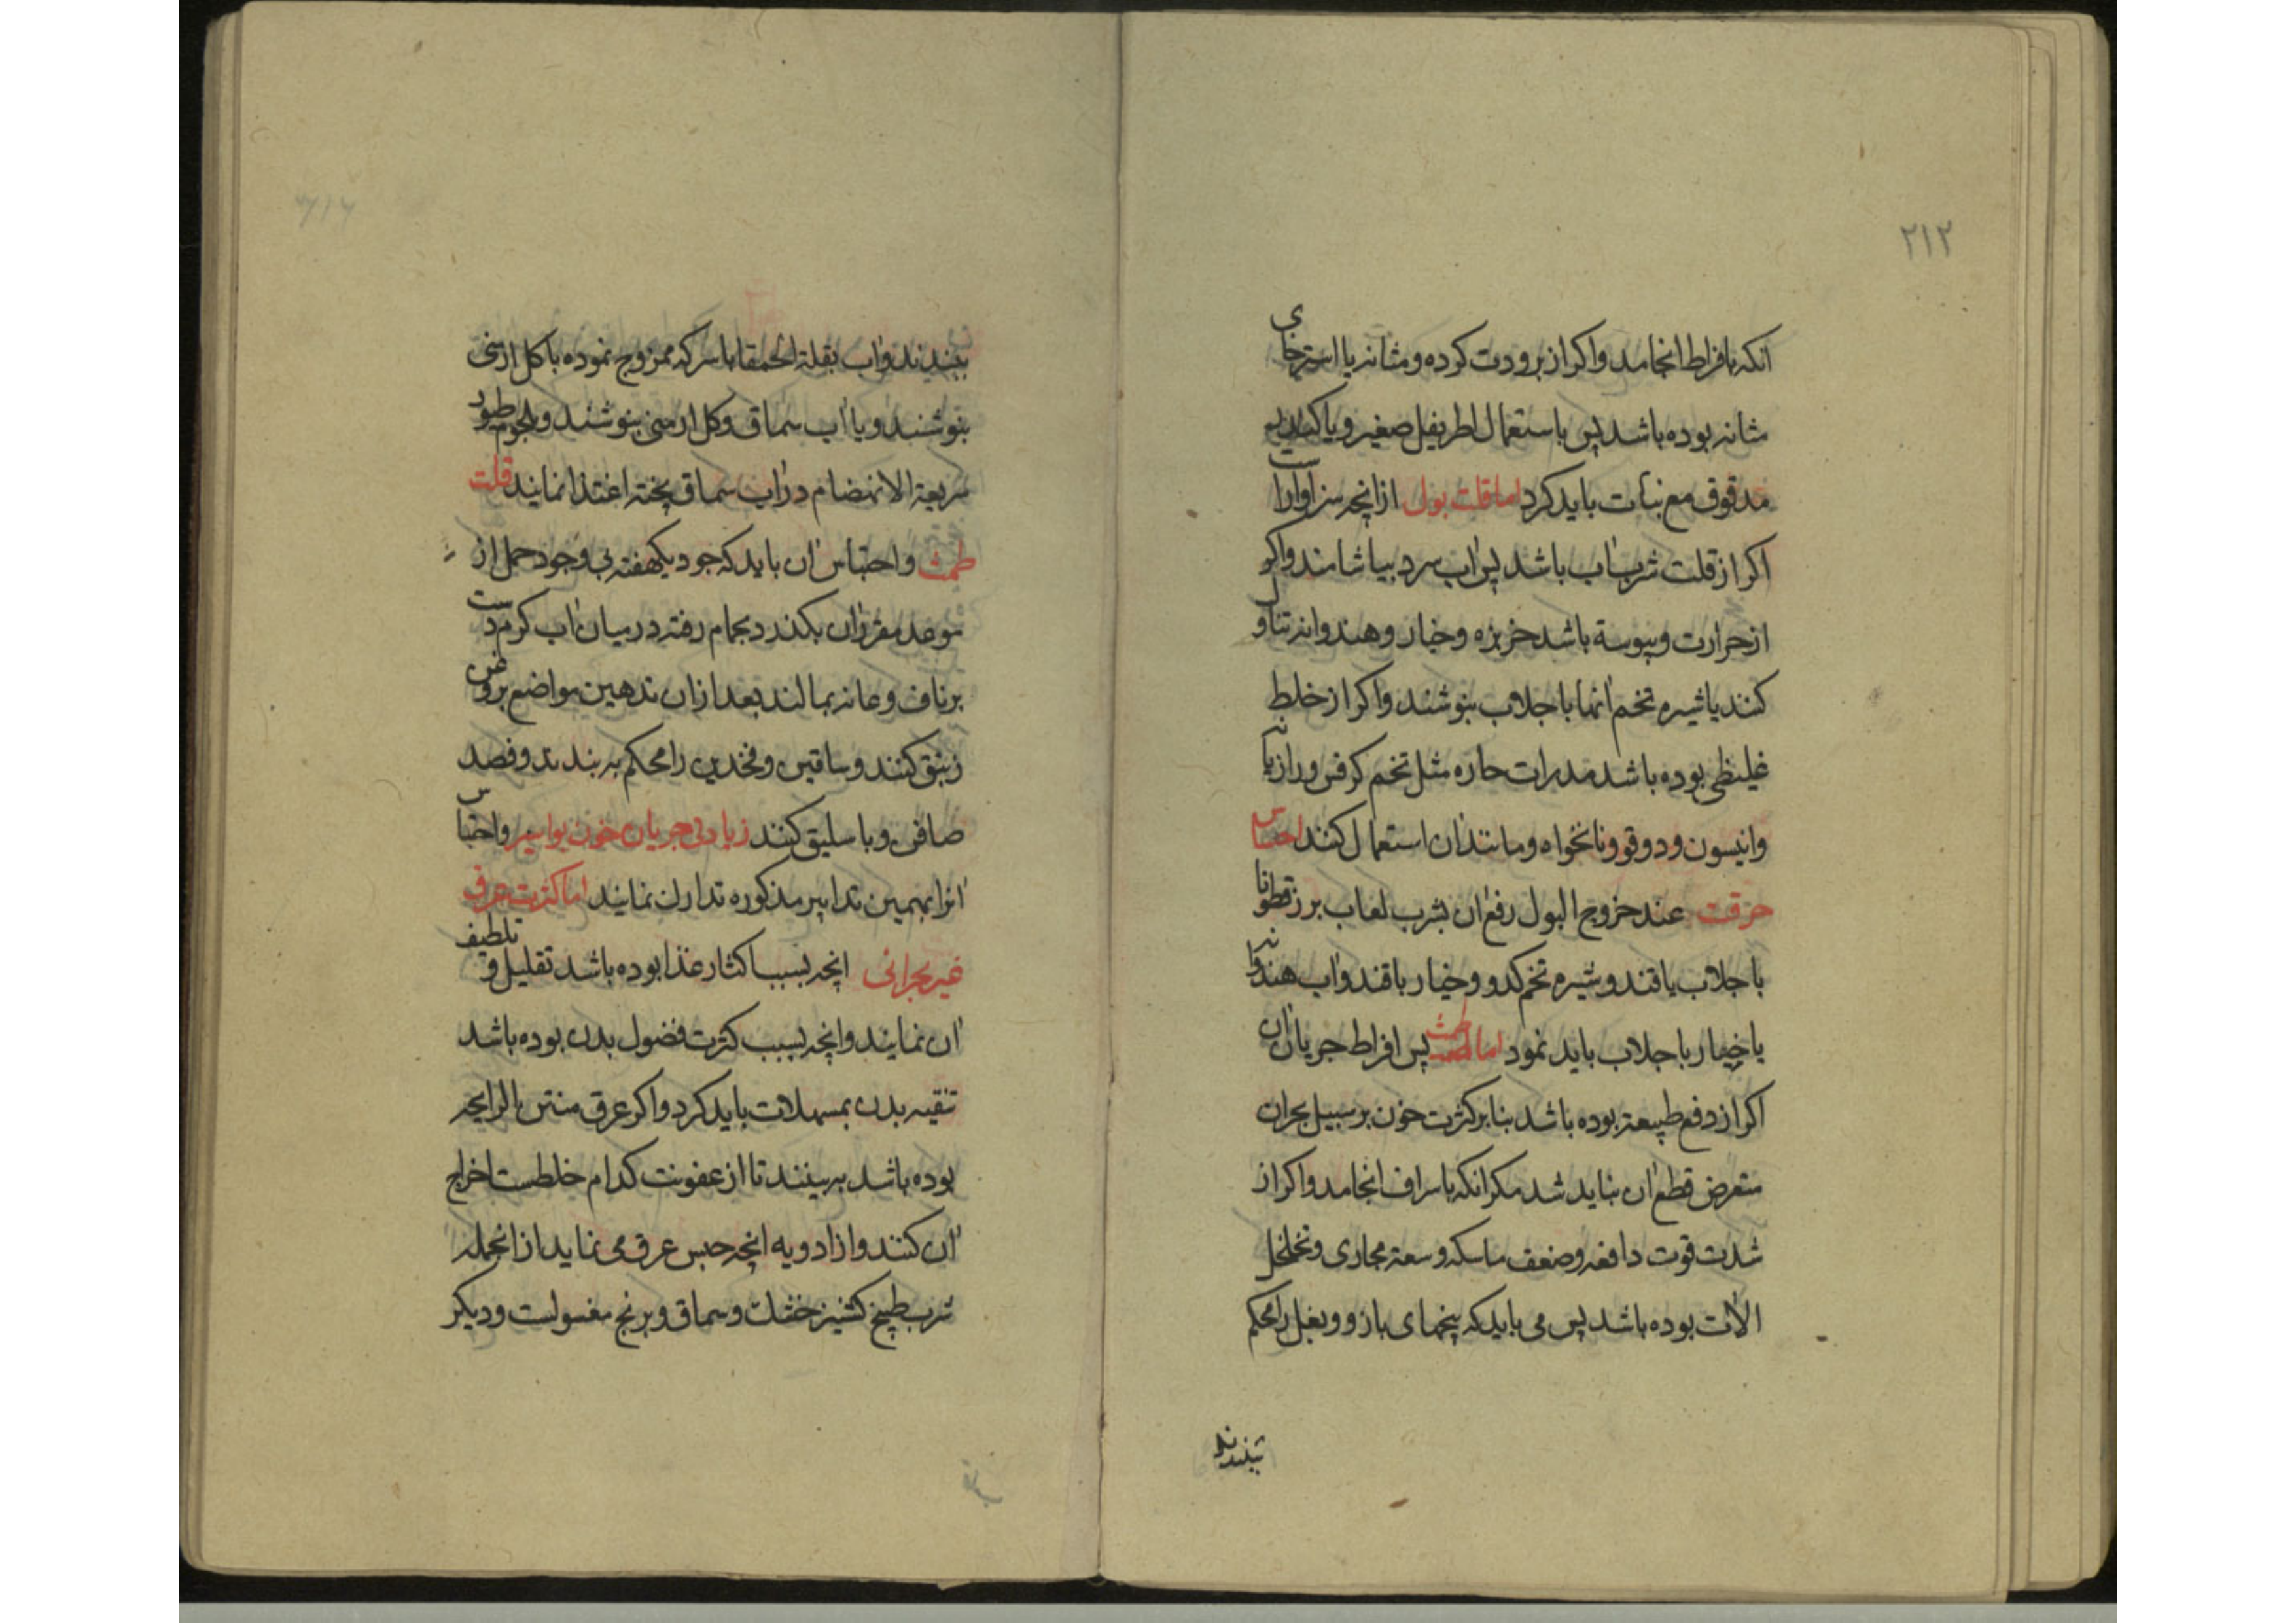 ۲۱۲
انکه بافراط انجامد واکر از برودت کرده و مثانه یا استرخای
مثانه بوده باشد پس باستعمال اطریفل صغیر و یا کندر
مدقوق مع نبات باید کرد اما قلت بول ازانچه سزاوارست
اکر از قلت شرب اب باشد پس اب سرد بیاشامند واکر
از حرارت و یبوسة باشد خربزه و خیار و هندوانه تناول
کنند یا شیره تخم انها با جلاب بنوشند واکر از خلط
غلیظی بوده باشد مدرات حاره مثل تخم کرفس و رازیانه
وانیسون و دوقو و نانخواه و مانند ان استعمال کنند احتباس
حرقت عند خروج البول رفع ان بشرب لعاب بزرقطونا
با جلاب یا قند و شیره تخم کدو و خیار باقند و اب هندوانه
یا خیار با جلاب باید نمود اما طمث پس افراط جریان ان
اکر از دفع طبیعة بوده باشد بنابر کثرت خون بر سبیل بحران
متعرض قطع ان نباید شد مکر انکه باسراف انجامد واکر از
شدت قوت دافعه وضعف ماسکه و سعة مجاری و تخلخل
الات بوده باشد پس می باید که بیخهای بازو و بغل را محکم
ببندند
ببندند و اب بقلة الحمقا با سرکه ممزوج نموده با کل ارمنی
بنوشند و یا اب سماق و کل ارمنی بنوشند و بلحوم طیور
سریعة الانهضام در اب سماق پخته اغتذا نمایند قلت
طمث و احتباس ان باید که چو دیکهفته بی وجود حمل از
موعد مقرر ان بکذرد بحمام رفته در میان اب کرم دست
بر ناف و عانه بمالند بعد ازان تدهین مواضع بروغن
زنبق کنند و ساقین و فخذین را محکم به بندند و فصد
صافن و یا باسلیق کنند زیادتی جریان خون بواسیر واحتباس
انرا بهمین تدابیر مذکوره تدارک نمایند اما کثرت عرق
غیر بحرانی انچه بسبب اکثار غذا بوده باشد تقلیل و تلطیف
ان نمایند وانچه بسبب کثرت فضول بدن بوده باشد
تنقیه بدن بمسهلات باید کرد واکر عرق منتن الرایحه
بوده باشد به بینند تا از عفونت کدام خلطست اخراج
ان کنند و از ادویه انچه حبس عرق می نماید از انجمله
شرب طبیخ کشنیز خشک و سماق و برنج مغسولست و دیکر